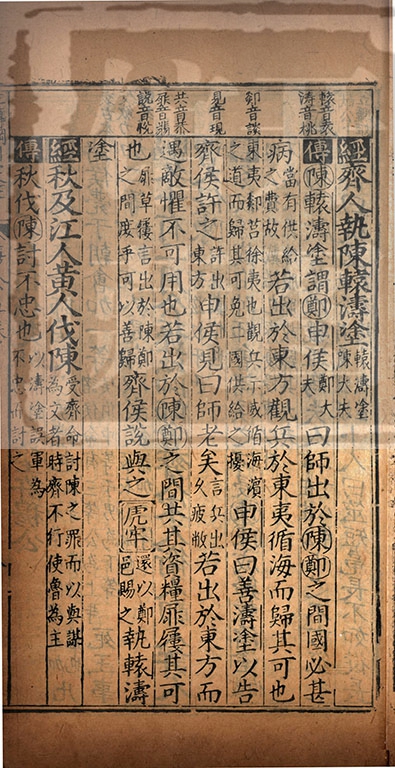 轅音袁
濤音桃
郯音談
見音現
共音恭
說音悅
經齊人執陳轅濤塗轅濤塗陳大夫
傳陳轅濤塗謂鄭申侯鄭大夫曰師出於陳鄭之間國必甚
病當有供給之費故若出於東方觀兵於東夷循海而歸其可也
東夷郯莒徐夷也觀兵示威循海濱之道而歸其可免土國供給之擾申侯曰善濤塗以告
齊侯許之許出東方申侯見曰師老矣言兵出久疲敝若出於東方而
遇敵懼不可用也若出於陳鄭之間共其資糧屝屨其可
也屝草屨言出於陳鄭之間度乎可以善歸齊侯說與之虎牢還以鄭邑賜之執轅濤
塗
經秋及江人黃人伐陳受齊命討陳之罪而以與謀為文者時齊不行使魯為主
傳秋伐陳討不忠也以濤塗誤軍為不忠而討之